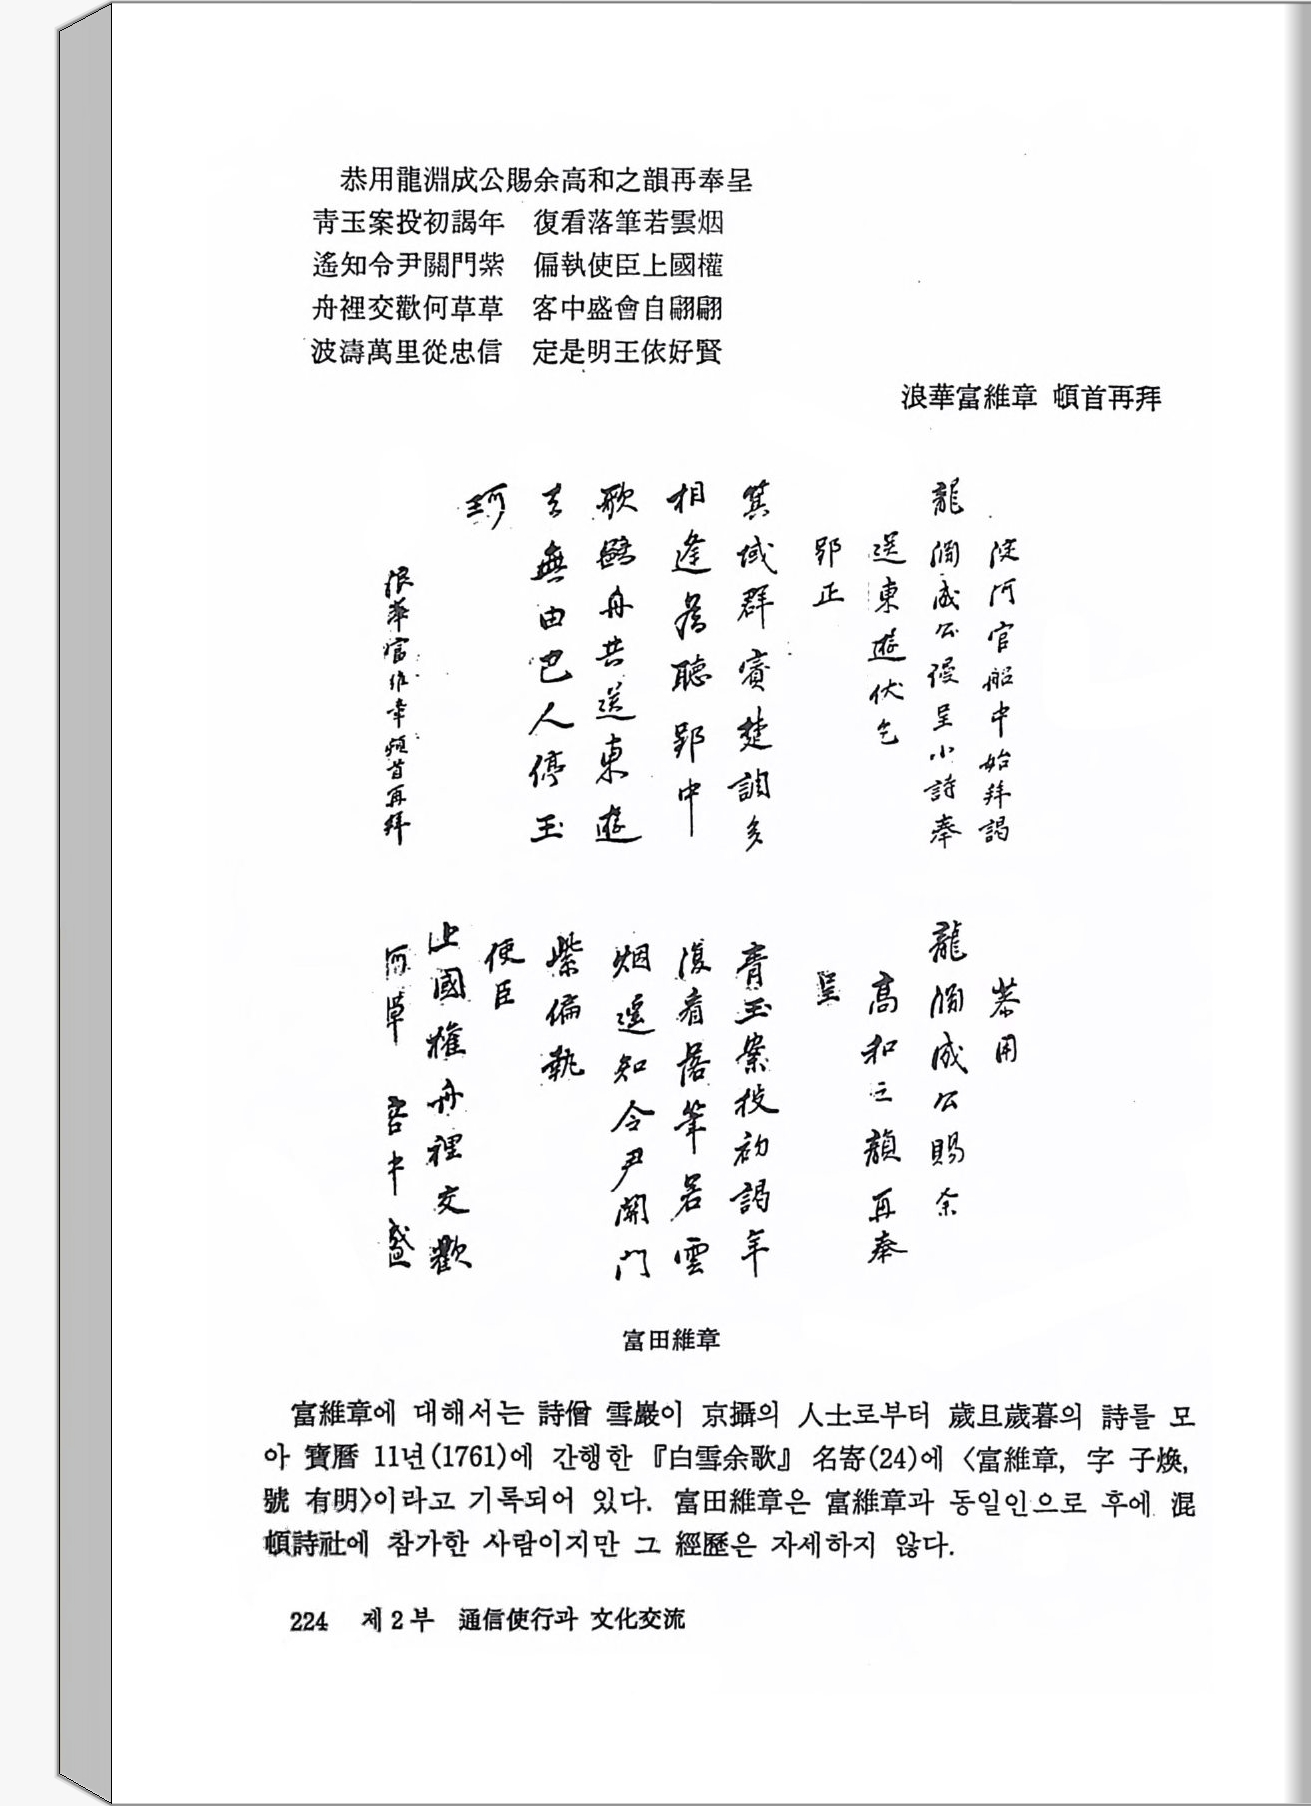 恭用龍淵成公賜余高和之韻再奉呈
靑玉案投初謁年 復看落筆若雲烟
遙知令尹關門紫 偏執使臣上國權
舟裡交歡何草草 客中盛會自翩翩
波濤萬里從忠信 定是明王依好賢
浪華富維章 頓首再拜
淀河官船中始拜謁
龍淵成公謾呈小詩奉
送東遊伏乞
郢正
箕域群賓楚調多
相逢舊聽郢中
歌 舟共送東遊
去無由巴人停玉
珂
浪華富維章頓首再拜
恭用
龍淵成公賜余
高和之韻再奉
呈
靑玉案投初謁年
復看落筆若雲
烟遙知令尹關門
紫偏執
使臣
上國權舟裡交歡
何草 客中盛
富田維章
富維章에 대해서는 詩僧 雪巖이 京攝의 人士로부터 歲旦歲暮의 詩를 모
아 寶曆 11년(1761)에 간행한 『白雪余歌』 名寄(24)에 〈富維章, 字 子煥,
號 有明〉이라고 기록되어 있다. 富田維章은 富維章과 동일인으로 후에 混
頓詩社에 참가한 사람이지만 그 經歷은 자세하지 않다.
224 제2부 通信使行과 文化交流